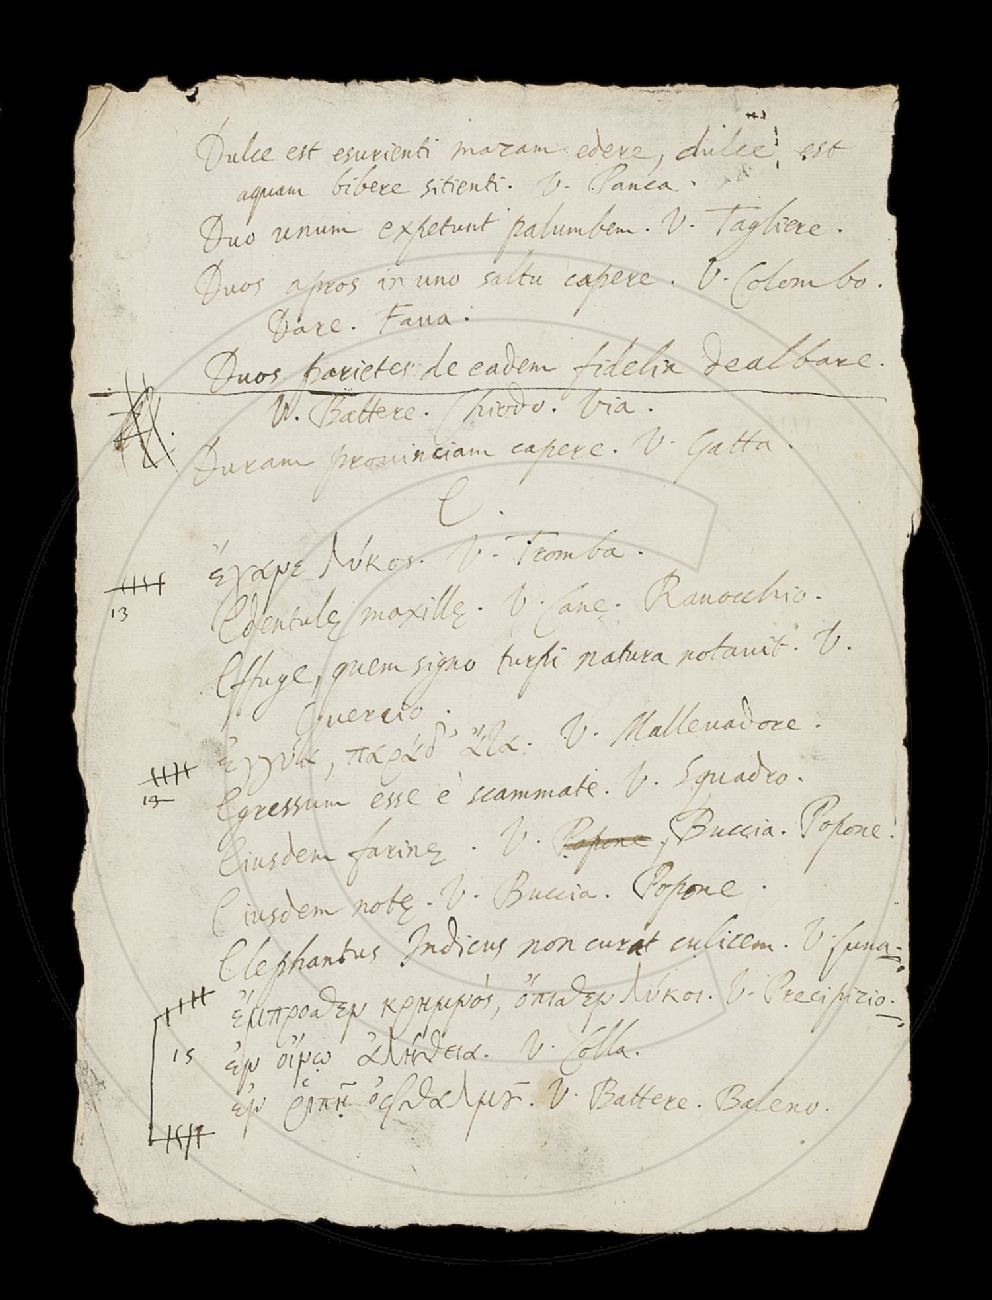 Dulce est esurienti mazam edere, dulce est
aquam bibere sitienti. V. Panca.
Duo unum expetunt palumbem. V. Tagliere.
Duos apros in uno saltu capere. V. Colombo.
Dare. Faua.
Duos parietes de eadem fidelia dealbare.
V. Battere. Chiodo. Via.
Duram prouinciam capere. V. Gatta.
E.
ἔχανε λύκος. V. Tromba.
13
Edentulę maxillę. V. Cane. Ranocchio.
Effuge, quem signo turpi natura notauit. V.
Guercio.
ἐγγύα, παρὰ δ' ἄτα. V. Malleuadore.
13
Egressum esse è scammate. V. Squadro.
Eiusdem farinę. V. Popone, Buccia. Popone.
Eiusdem notę. V. Buccia. Popone.
Elephantus Indicus non curat culicem. V. Luna.
ἔμπροσθεν κρημνός, ὄπισθεν λύκοι. V. Precipizio.
15
ἐν οἴνῳ ἀλήθεια. V. Colla.
ἐν ῥιπῇ ὀφθαλμοῦ. V. Battere. Baleno.